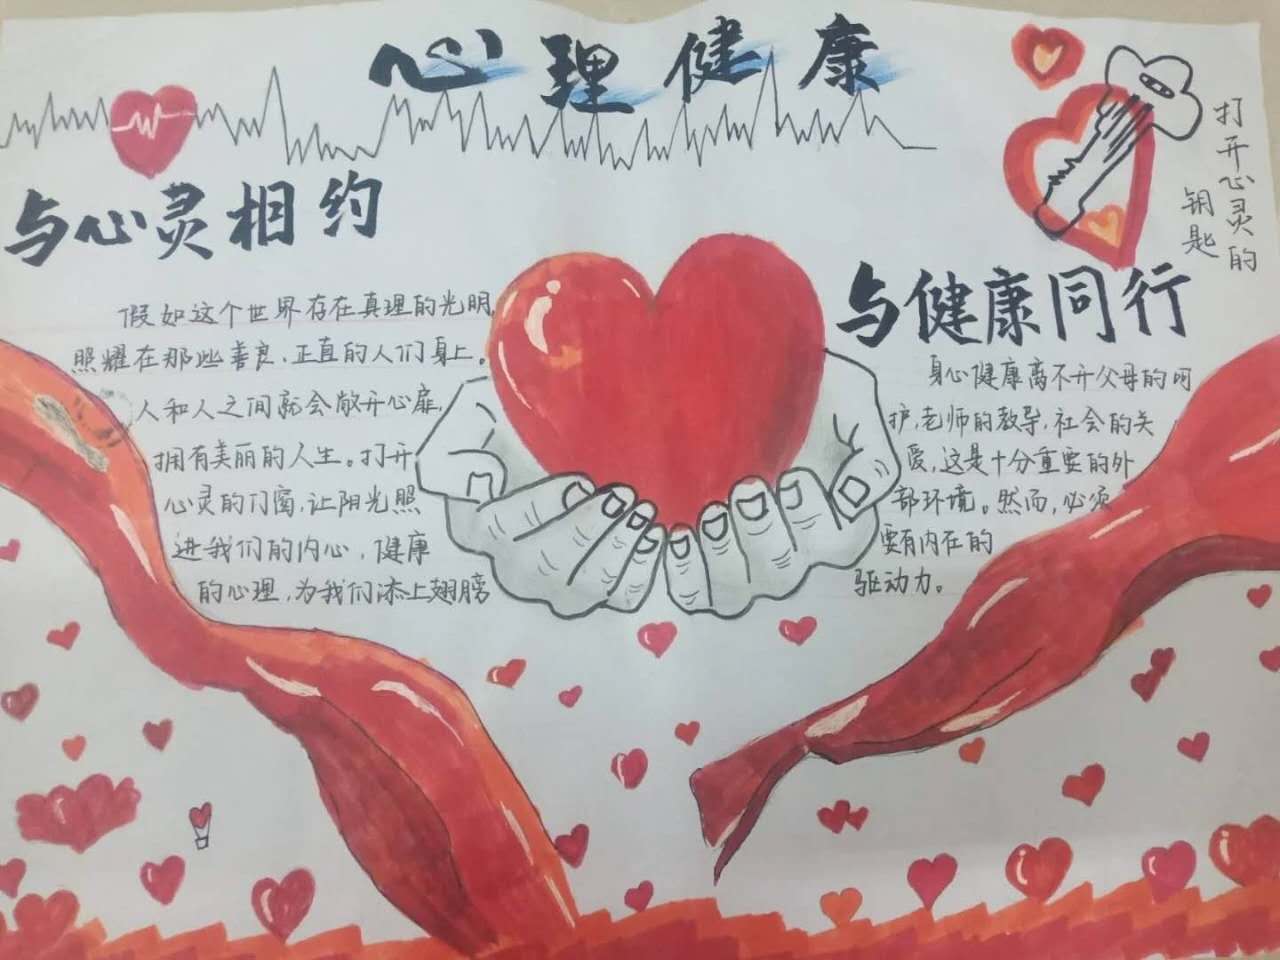 心理健康
与心灵相约
假如这个世界存在真理的光明,
照耀在那些善良、正直的人们身上。
人和人之间就会敞开心扉,
拥有美丽的人生。打开
心灵的门窗,让阳光照
进我们的内心,健康
的心理,为我们添上翅膀
打开心灵的
钥匙
与健康同行
身心健康离不开父母的呵
护,老师的教导,社会的关
爱,这是十分重要的外
部环境。然而,必须
要有内在的
驱动力。